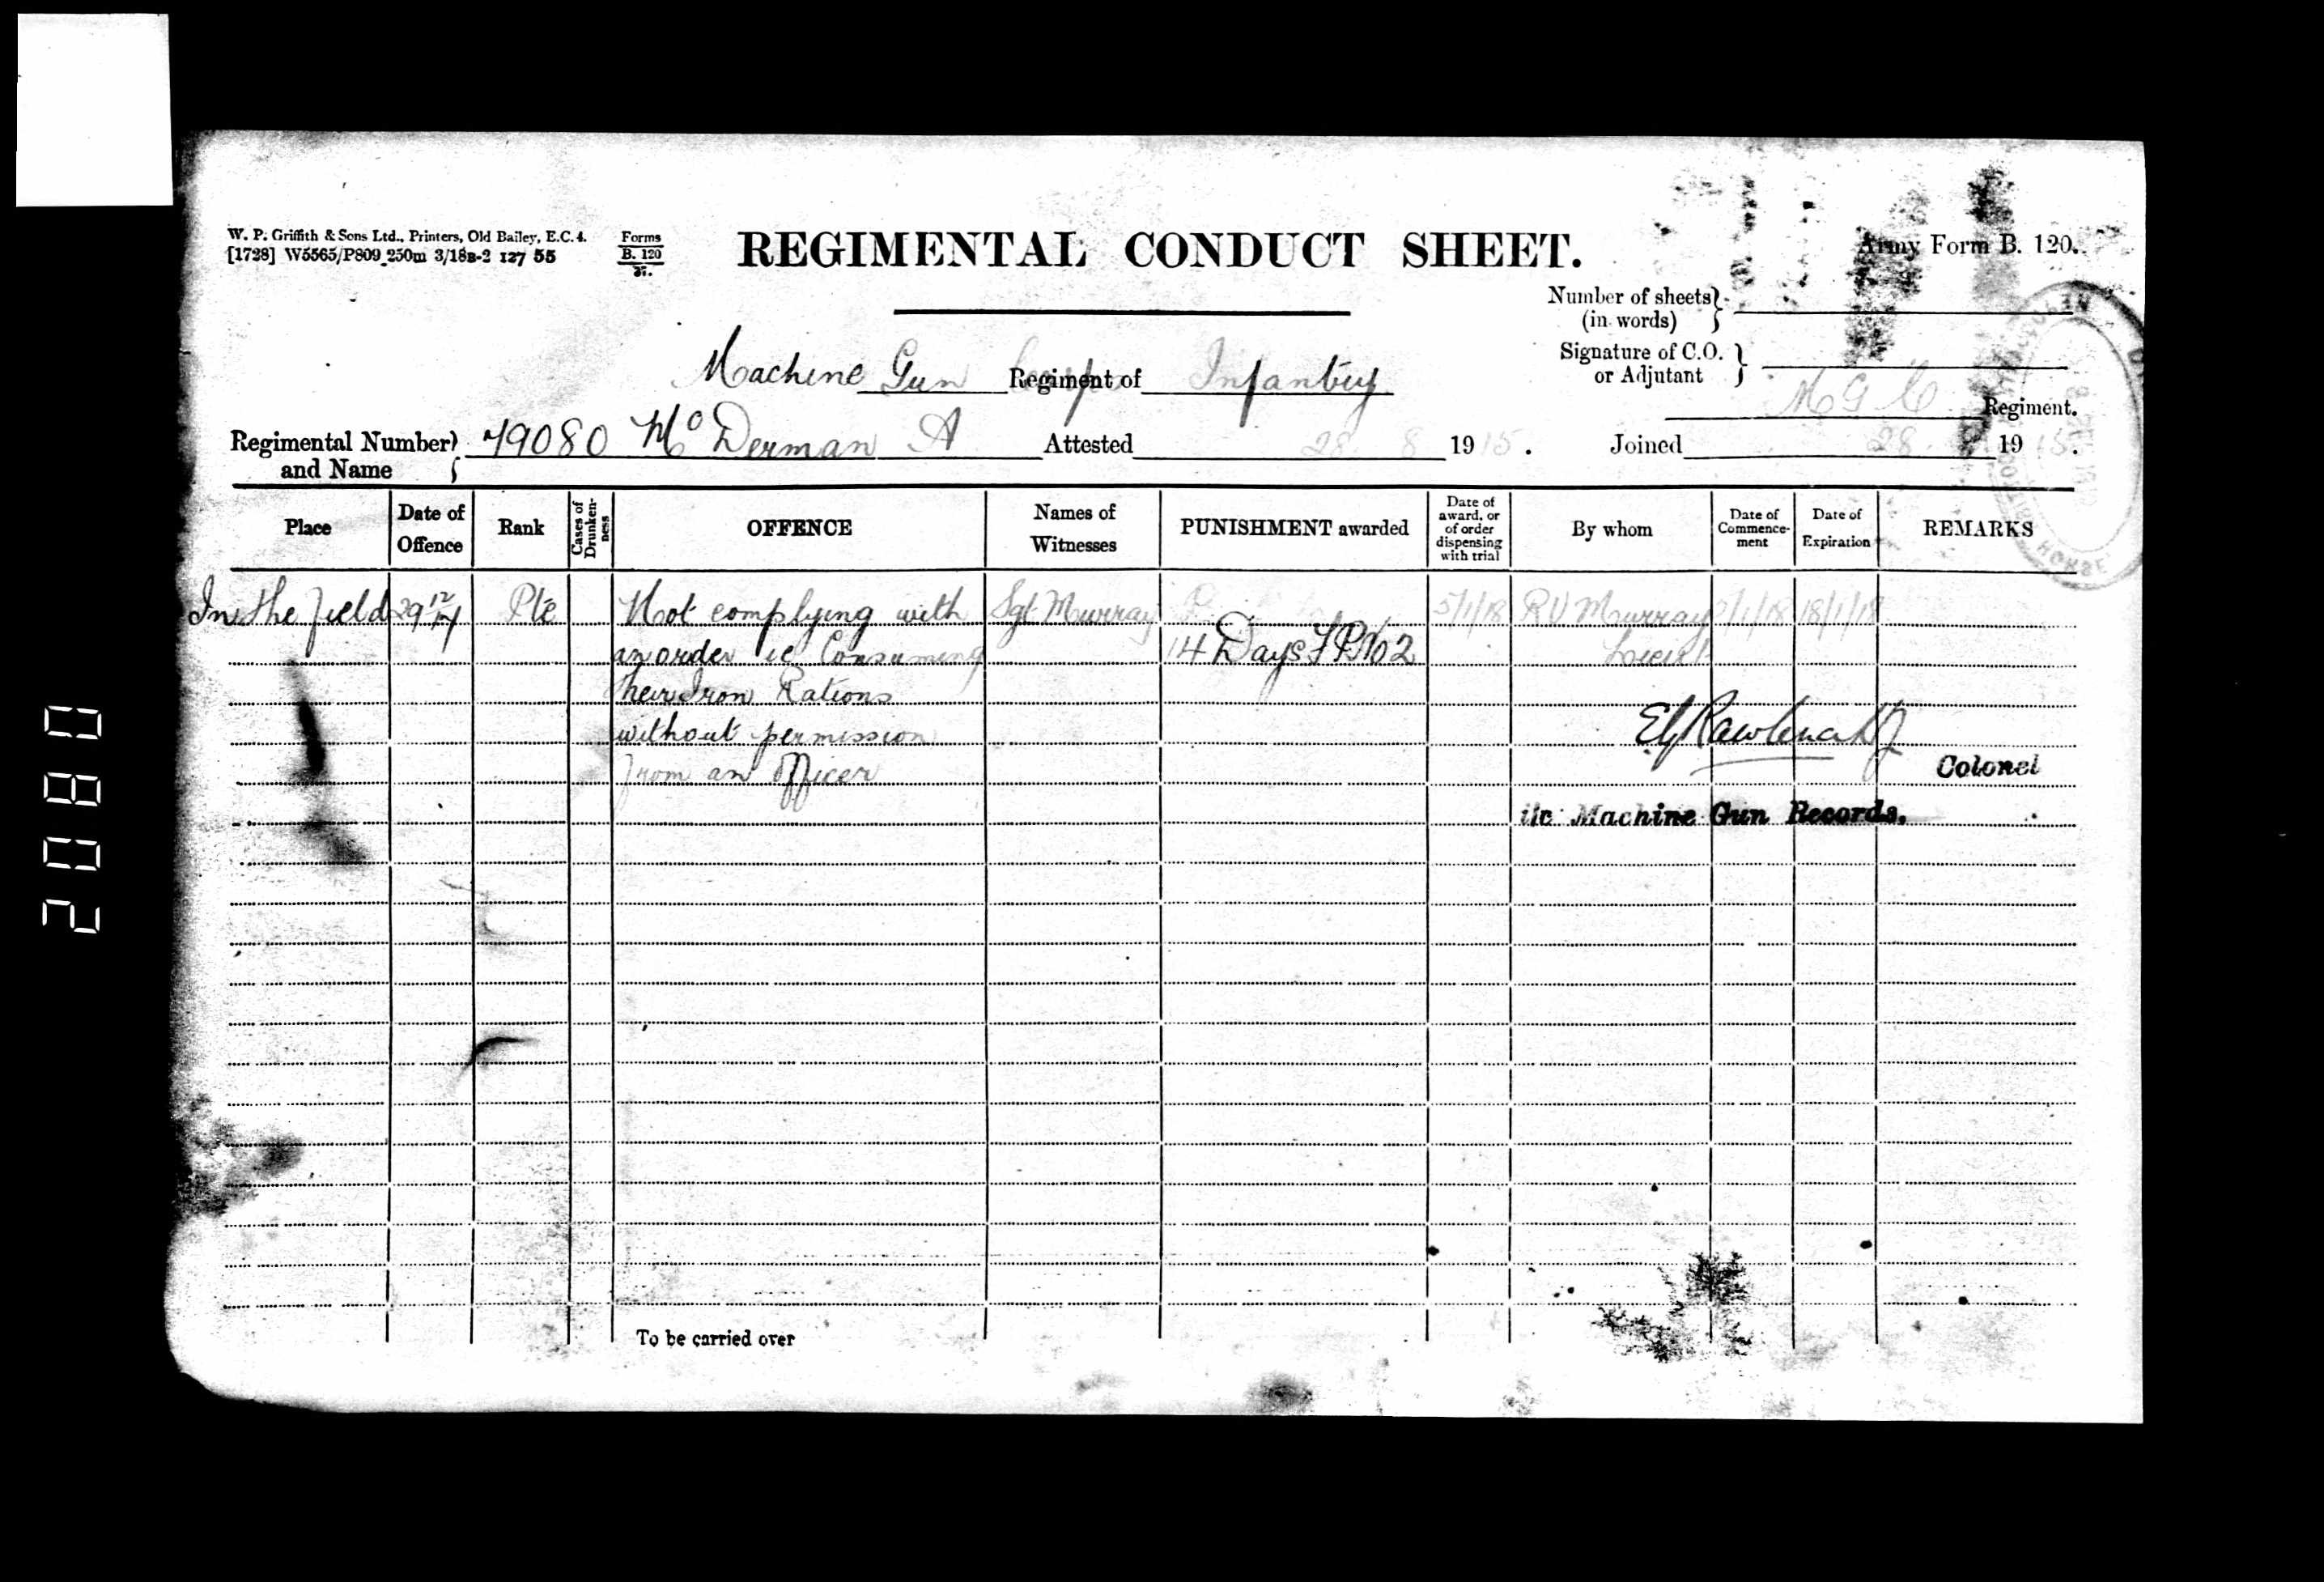 W. P. Griffith & Sons Ltd., Printers, Old Bailey, E.C.4.
[1728] W5565/P809 250m 3/18B-2 127 55
Forms
B. 120
REGIMENTAL CONDUCT SHEET.
Army Form B. 120.
Number of sheets
(in words)
Signature of C.O.
or Adjutant
Machine Gun Corps Regiment of Infantry
M G C Regiment.
Regimental Number
and Name
79080 Mc Derman A Attested 28 8 1915. Joined 28 1915.
Place
Date of
Offence
Rank
Cases of
Drunken-
ness
OFFENCE
Names of
Witnesses
PUNISHMENT awarded
Date of
award, or
of order
dispensing
with trial
By whom
Date of
Commence-
ment
Date of
Expiration
REMARKS
In the field 29 12/17 Pte Not complying with Sgt Murray 5/1/18 R V Murray 5/1/18 18/1/18
an order ie Consuming 14 Days F P No 2 Lieut
their Iron Rations
without permission
from an Officer
Colonel
i/c Machine Gun Records.
To be carried over
HORSE
2080